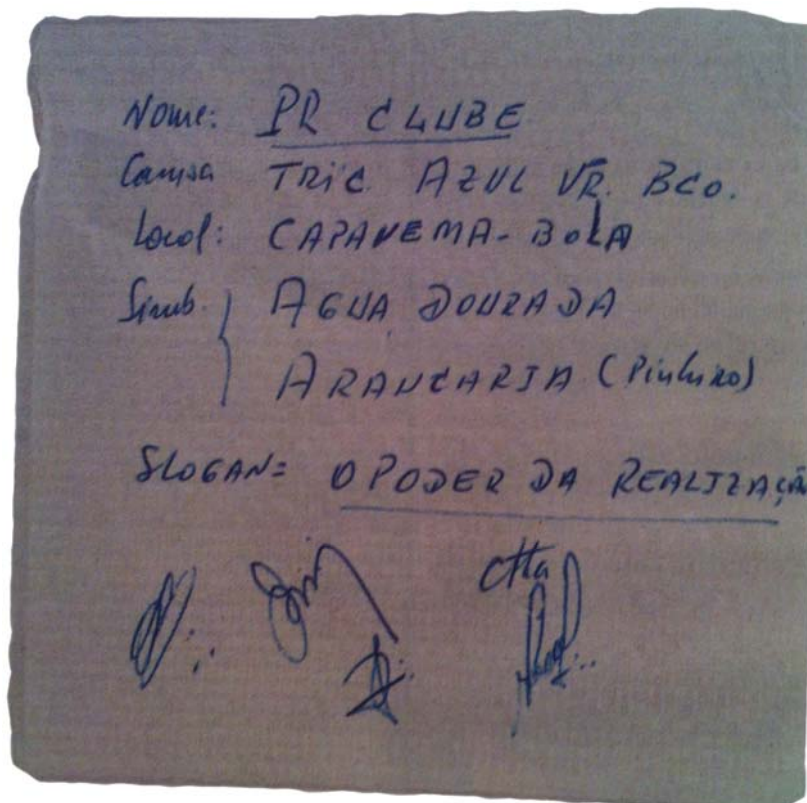 Nome: PR CLUBE
Camisa TRIC. AZUL VR. BCO.
Local: CAPANEMA - BOLA
Simb. AGUA DOURADA
ARAUCARIA (Pinheiro)
SLOGAN = O PODER DA REALIZAÇÃO